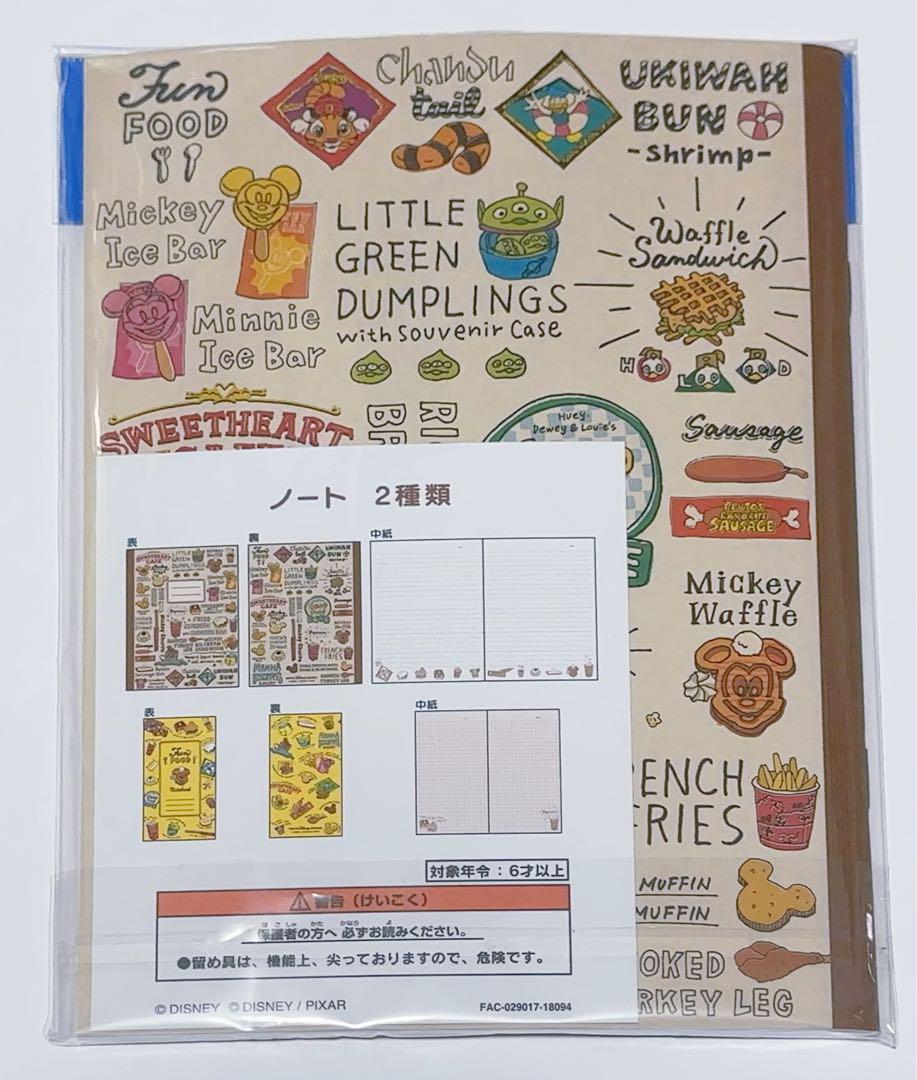 Fun
FOOD
Chandu
tail
UKIWAH
BUN
-Shrimp-
Mickey
Ice Bar
LITTLE
GREEN
DUMPLINGS
with Souvenir Case
Waffle
Sandwich
Minnie
Ice Bar
H
L
D
SWEETHEART
Huey・
Dewey & Louie's
Sausage
PLUTO'S
FAVORITE
SAUSAGE
Mickey
Waffle
ENCH
RIES
MUFFIN
MUFFIN
OKED
RKEY LEG
ノート 2種類
表
裏
中紙
表
裏
中紙
対象年令：6才以上
警告（けいこく）
ほごしゃ かた かなら よ
保護者の方へ 必ずお読みください。
●留め具は、機能上、尖っておりますので、危険です。
© DISNEY © DISNEY / PIXAR
FAC-029017-18094